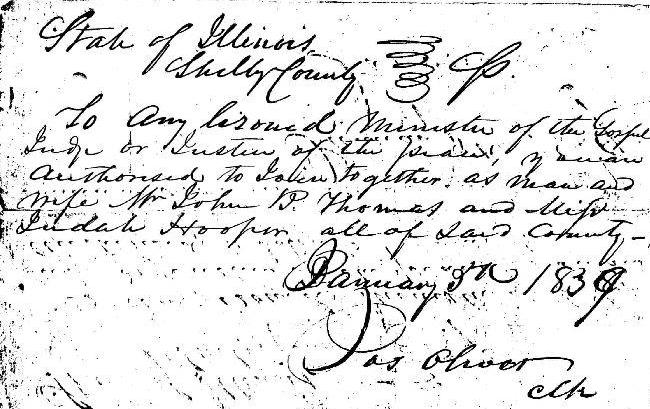 State of Illinois
Shelby County } Ss.
To Any Licenced Minister of the Gospel
Judge or Justice of the peace, you are
Authorised to Join together as man and
wife Mr John P. Thomas and Miss
Judah Hooper all of Said County—
January 3rd 1839
Jos Oliver
Clk